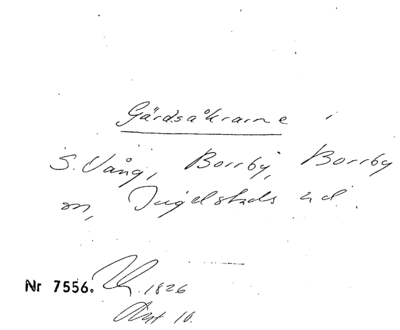 Gårdsåkrarne i
S. Vång, Borrby, Borrby
sn, Ingelstads hd.
Nr 7556. 1826
Avt 10.